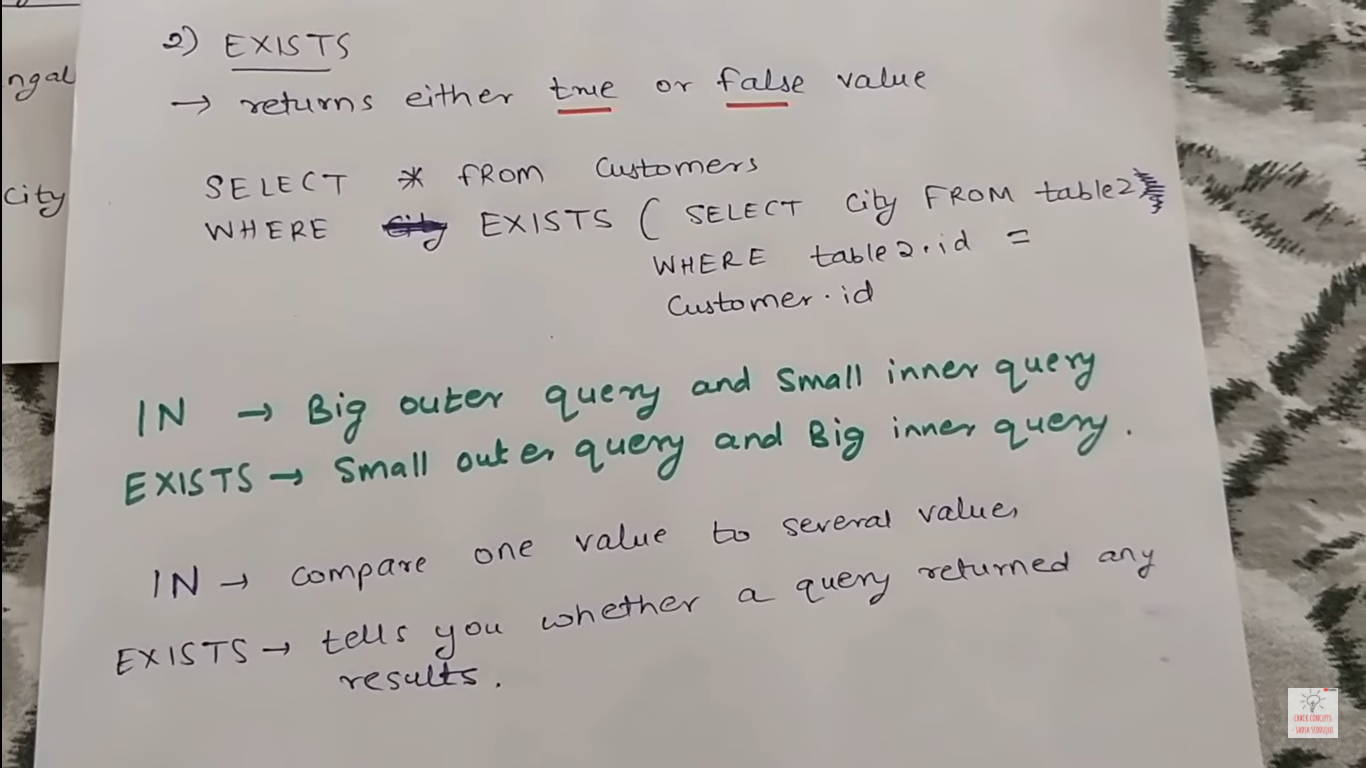 ngal
City
2) EXISTS
→ returns either true or false value
SELECT * FROM Customers
WHERE EXISTS ( SELECT City FROM table2
WHERE table2.id =
Customer.id
IN → Big outer query and Small inner query
EXISTS → Small outer query and Big inner query.
IN → compare one value to several value,
EXISTS → tells you whether a query returned any
results.
CRACK CONCEPTS